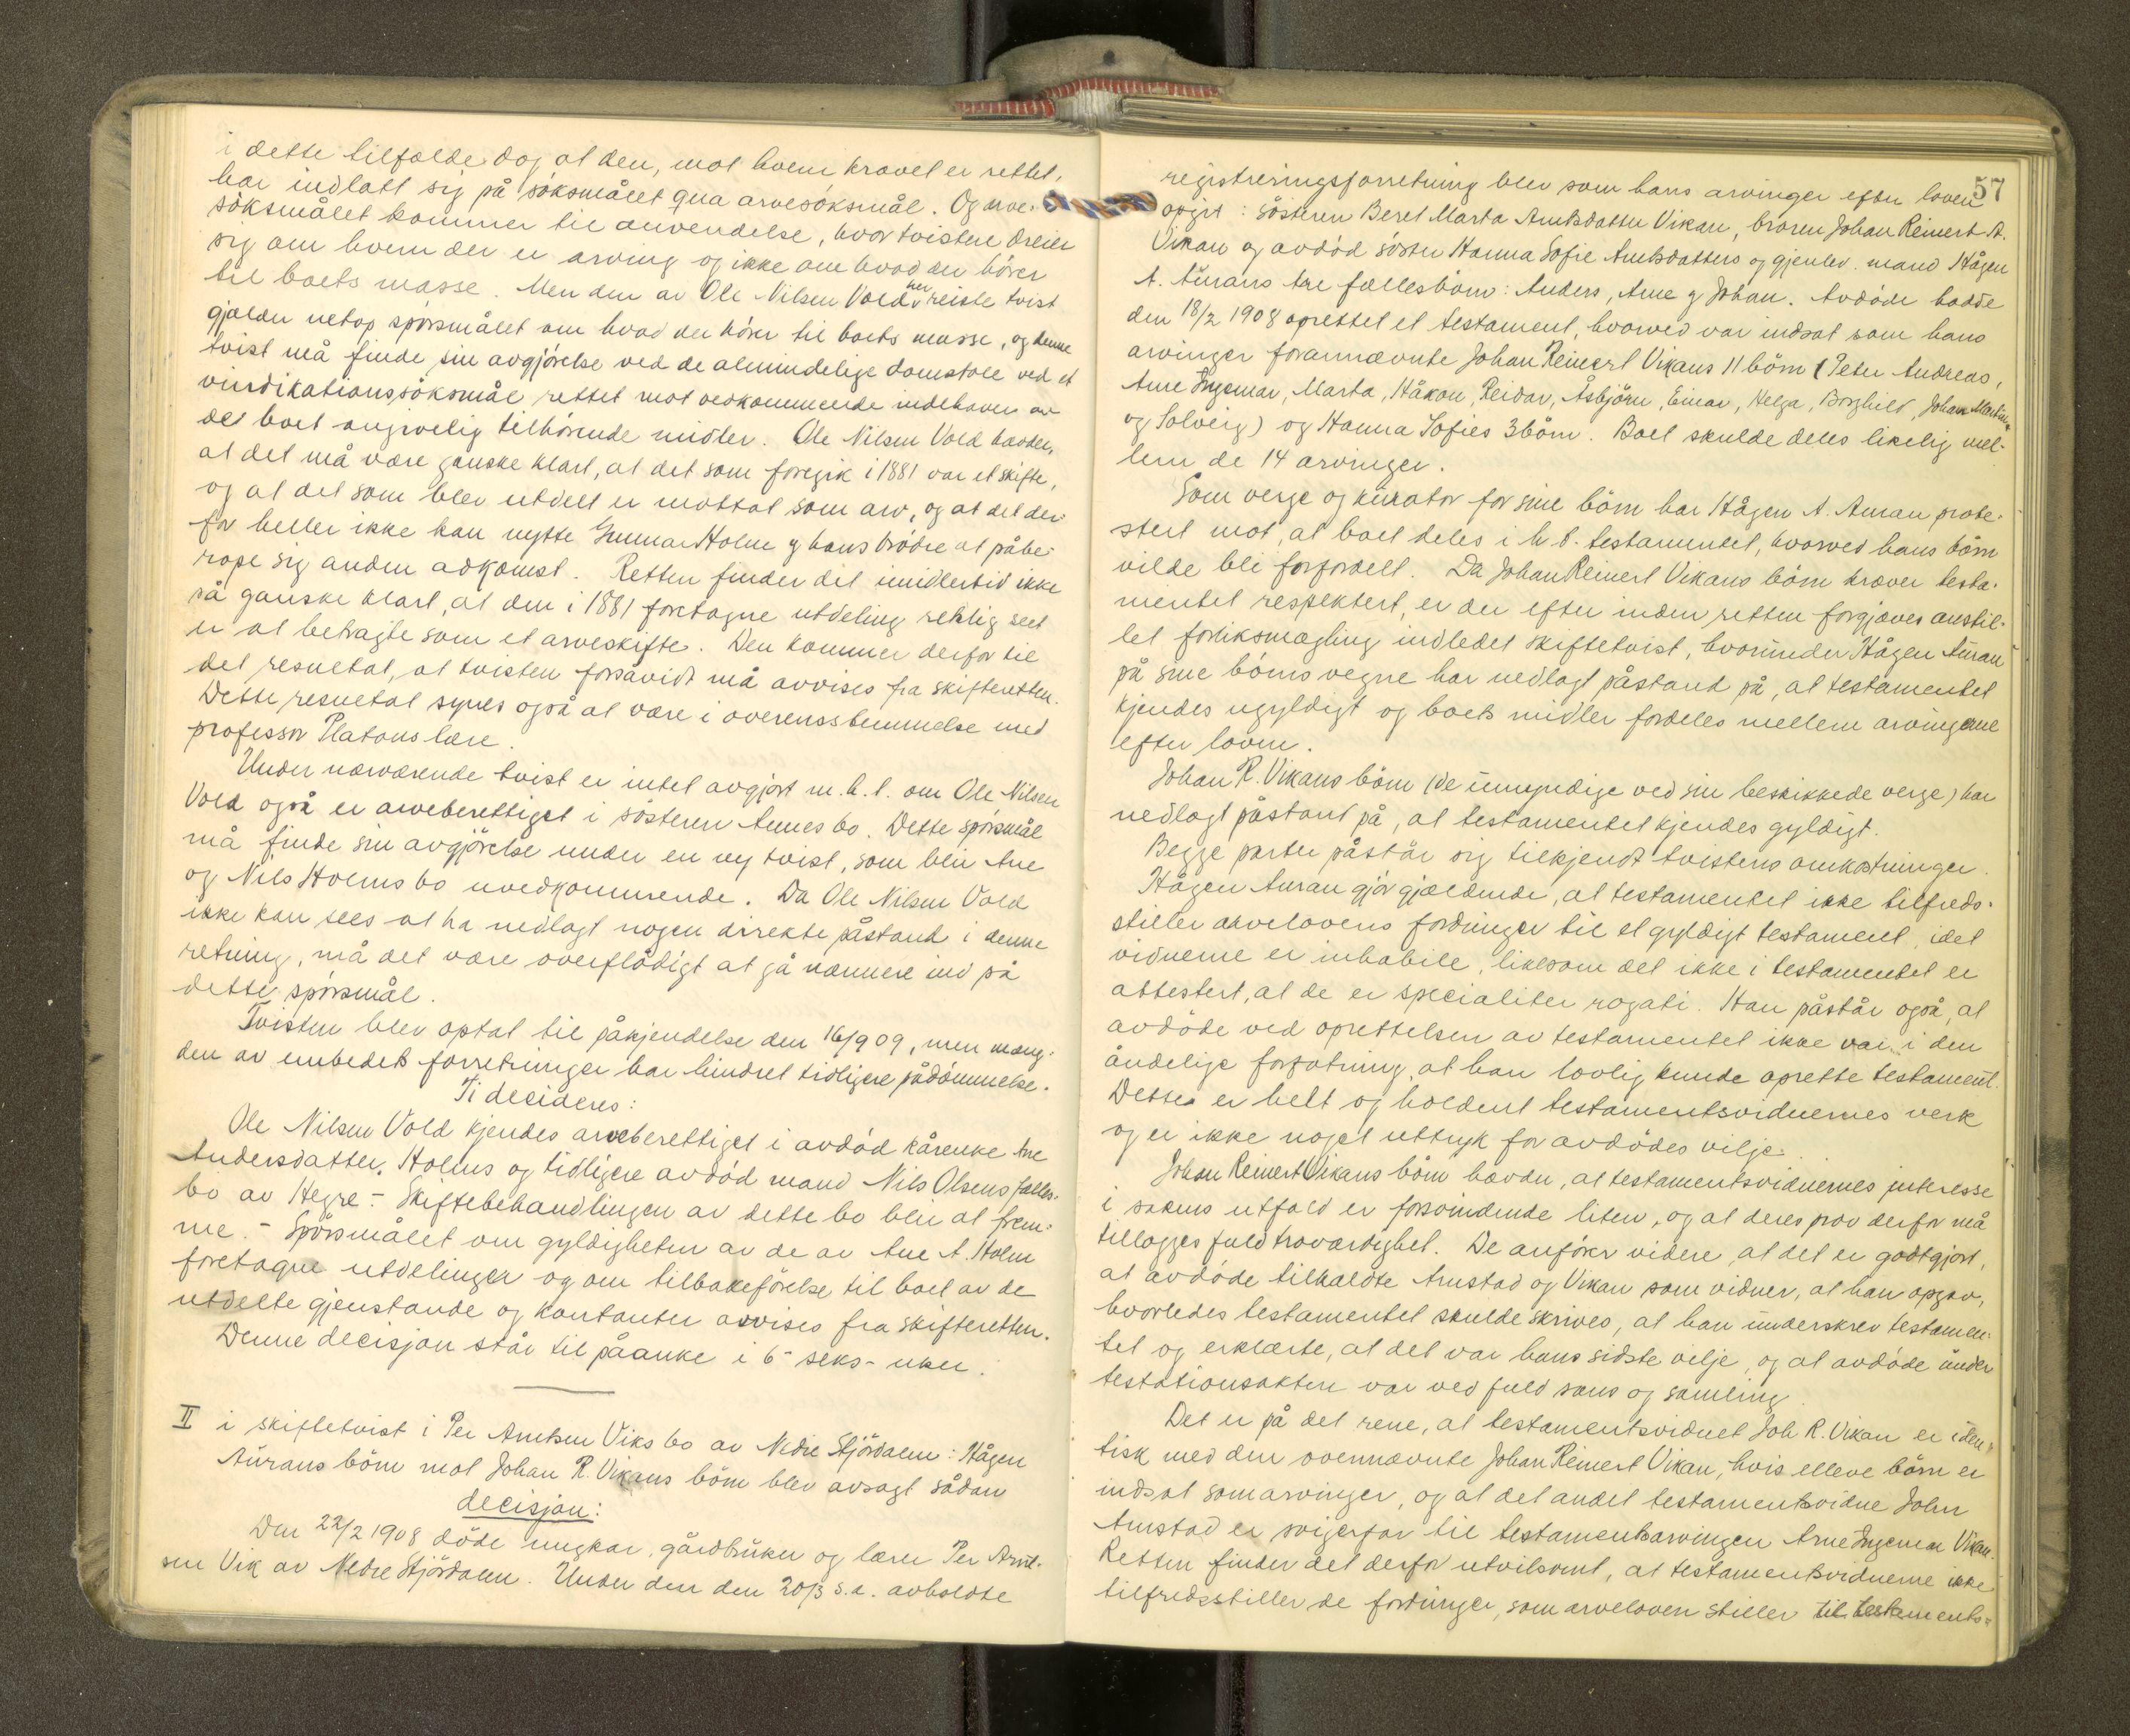 i dette tilfælde dog at den, mot hvem kravet er rettet,
har indlatt sig på søksmålet qua arvesøksmål. Og arve-
søksmålet kommer til anvendelse, hvor tvisten dreier
sig om hvem der er arving og ikke om hvad der hører
til boets masse. Men den av Ole Nilsen Vold her reiste tvist
gjælder netop spørsmålet om hvad der hører til boets masse, og denne
tvist må finde sin avgjørelse ved de almindelige domstole ved et
vindikationssøksmål rettet mot vedkommende indehaver av
det boet angivelig tilhørende midler. Ole Nilsen Vold hævder,
at det må være ganske klart, at det som foregik i 1881 var et skifte,
og at det som blev utdelt er mottat som arv, og at det der-
for heller ikke kan nytte Gunnar Holm og hans brødre at påbe-
rope sig anden adkomst. Retten finder det imidlertid ikke
så ganske klart, at den i 1881 foretagne utdeling rettlig seet
er at betragte som et arveskifte. Den kommer derfor til
det resultat, at tvisten forsåvidt må avvises fra skifteretten.
Dette resultat synes også at være i overensstemmelse med
professor Platous lære.
Under nærværende tvist er intet avgjort m.h.t. om Ole Nilsen
Vold også er arveberettiget i søsteren Annes bo. Dette spørsmål
må finde sin avgjørelse under en ny tvist, som blir Ane
og Nils Holms bo uvedkommende. Da Ole Nilsen Vold
ikke kan sees at ha nedlagt nogen direkte påstand i denne
retning, må det være overflødigt at gå nærmere ind på
dette spørsmål.
Tvisten blev optat til påkjendelse den 16/9 09, men mæng-
den av embedets forretninger har hindret tidligere pådømmelse.
Ti decideres:
Ole Nilsen Vold kjendes arveberettiget i avdød kårenke Ane
Andersdatter Holms og tidligere avdød mand Nils Olsens fælles-
bo av Hegre. - Skiftebehandlingen av dette bo blir at frem-
me. - Spørsmålet om gyldigheten av de av Ane A. Holm
foretagne utdelinger og om tilbakeførelse til boet av de
utdelte gjenstande og kontanter avvises fra skifteretten.
Denne decisjon står til påanke i 6 - seks - uker.
II i skiftetvist i Per Arntsen Viks bo av Nedre Stjørdalen: Hågen
Aurans børn mot Johan R. Vikans børn blev avsagt sådan
decisjon:
Den 22/2 1908 døde ungkar, gårdbruker og lærer Per Arnt-
sen Vik av Nedre Stjørdalen. Under den den 20/3 s.a. avholdte
57
registreringsforretning blev som hans arvinger efter loven
opgit: søsteren Beret Marta Arntsdatter Vikan, broren Johan Reinert A.
Vikan og avdød søster Hanna Sofie Arntsdatters og gjenlev. mand Hågen
A. Aurans tre fællesbørn: Anders, Arne og Johan. Avdøde hadde
den 18/2 1908 oprettet et testament, hvorved var indsat som hans
arvinger forannævnte Johan Reinert Vikans 11 børn (Peter Andreas,
Arne Ingemar, Marta, Håkon, Reidar, Åsbjørn, Einar, Helga, Borghild, Johan Martin
og Solveig) og Hanna Sofies 3 børn. Boet skulde deles likelig mel-
lem de 14 arvinger.
Som verge og kurator for sine børn har Hågen A. Auran prote-
stert mot, at boet deles i h. t. testamentet, hvorved hans børn
vilde bli forfordelt. Da Johan Reinert Vikans børn kræver testa-
mentet respektert, er der efter inden retten forgjæves anstil-
let forliksmægling indledet skiftetvist, hvorunder Hågen Auran
på sine børns vegne har nedlagt påstand på, at testamentet
kjendes ugyldigt og boets midler fordeles mellem arvingerne
efter loven.
Johan R. Vikans børn (de umyndige ved sin beskikkede verge) har
nedlagt påstand på, at testamentet kjendes gyldigt.
Begge parter påstår sig tilkjendt tvistens omkostninger.
Hågen Auran gjør gjældende, at testamentet ikke tilfreds-
stiller arvelovens fordringer til et gyldigt testament, idet
vidnerne er inhabile, likesom det ikke i testamentet er
attestert, at de er specialiter rogati. Han påstår også, at
avdøde ved oprettelsen av testamentet ikke var i den
åndelige forfatning, at han lovlig kunde oprette testament.
Dette er helt og holdent testamentsvidnernes verk
og er ikke noget uttryk for avdødes vilje.
Johan Reinert Vikans børn hævder, at testamentsvidnernes interesse
i sakens utfald er forsvindende liten, og at deres prov derfor må
tillægges fuld troværdighet. De anfører videre, at det er godtgjort,
at avdøde tilkaldte Arnstad og Vikan som vidner, at han opgav,
hvorledes testamentet skulde skrives, at han underskrev testamen-
tet og erklærte, at det var hans sidste vilje, og at avdøde under
testationsakten var ved fuld sans og samling.
Det er på det rene, at testamentsvidnet Joh R. Vikan er iden-
tisk med den ovennævnte Johan Reinert Vikan, hvis elleve børn er
indsat som arvinger, og at det andet testamentsvidne John
Arnstad er svigerfar til testamentsarvingen Arne Ingemar Vikan.
Retten finder det derfor utvilsomt, at testamentsvidnerne ikke
tilfredsstiller de fordringer, som arveloven stiller til testaments-